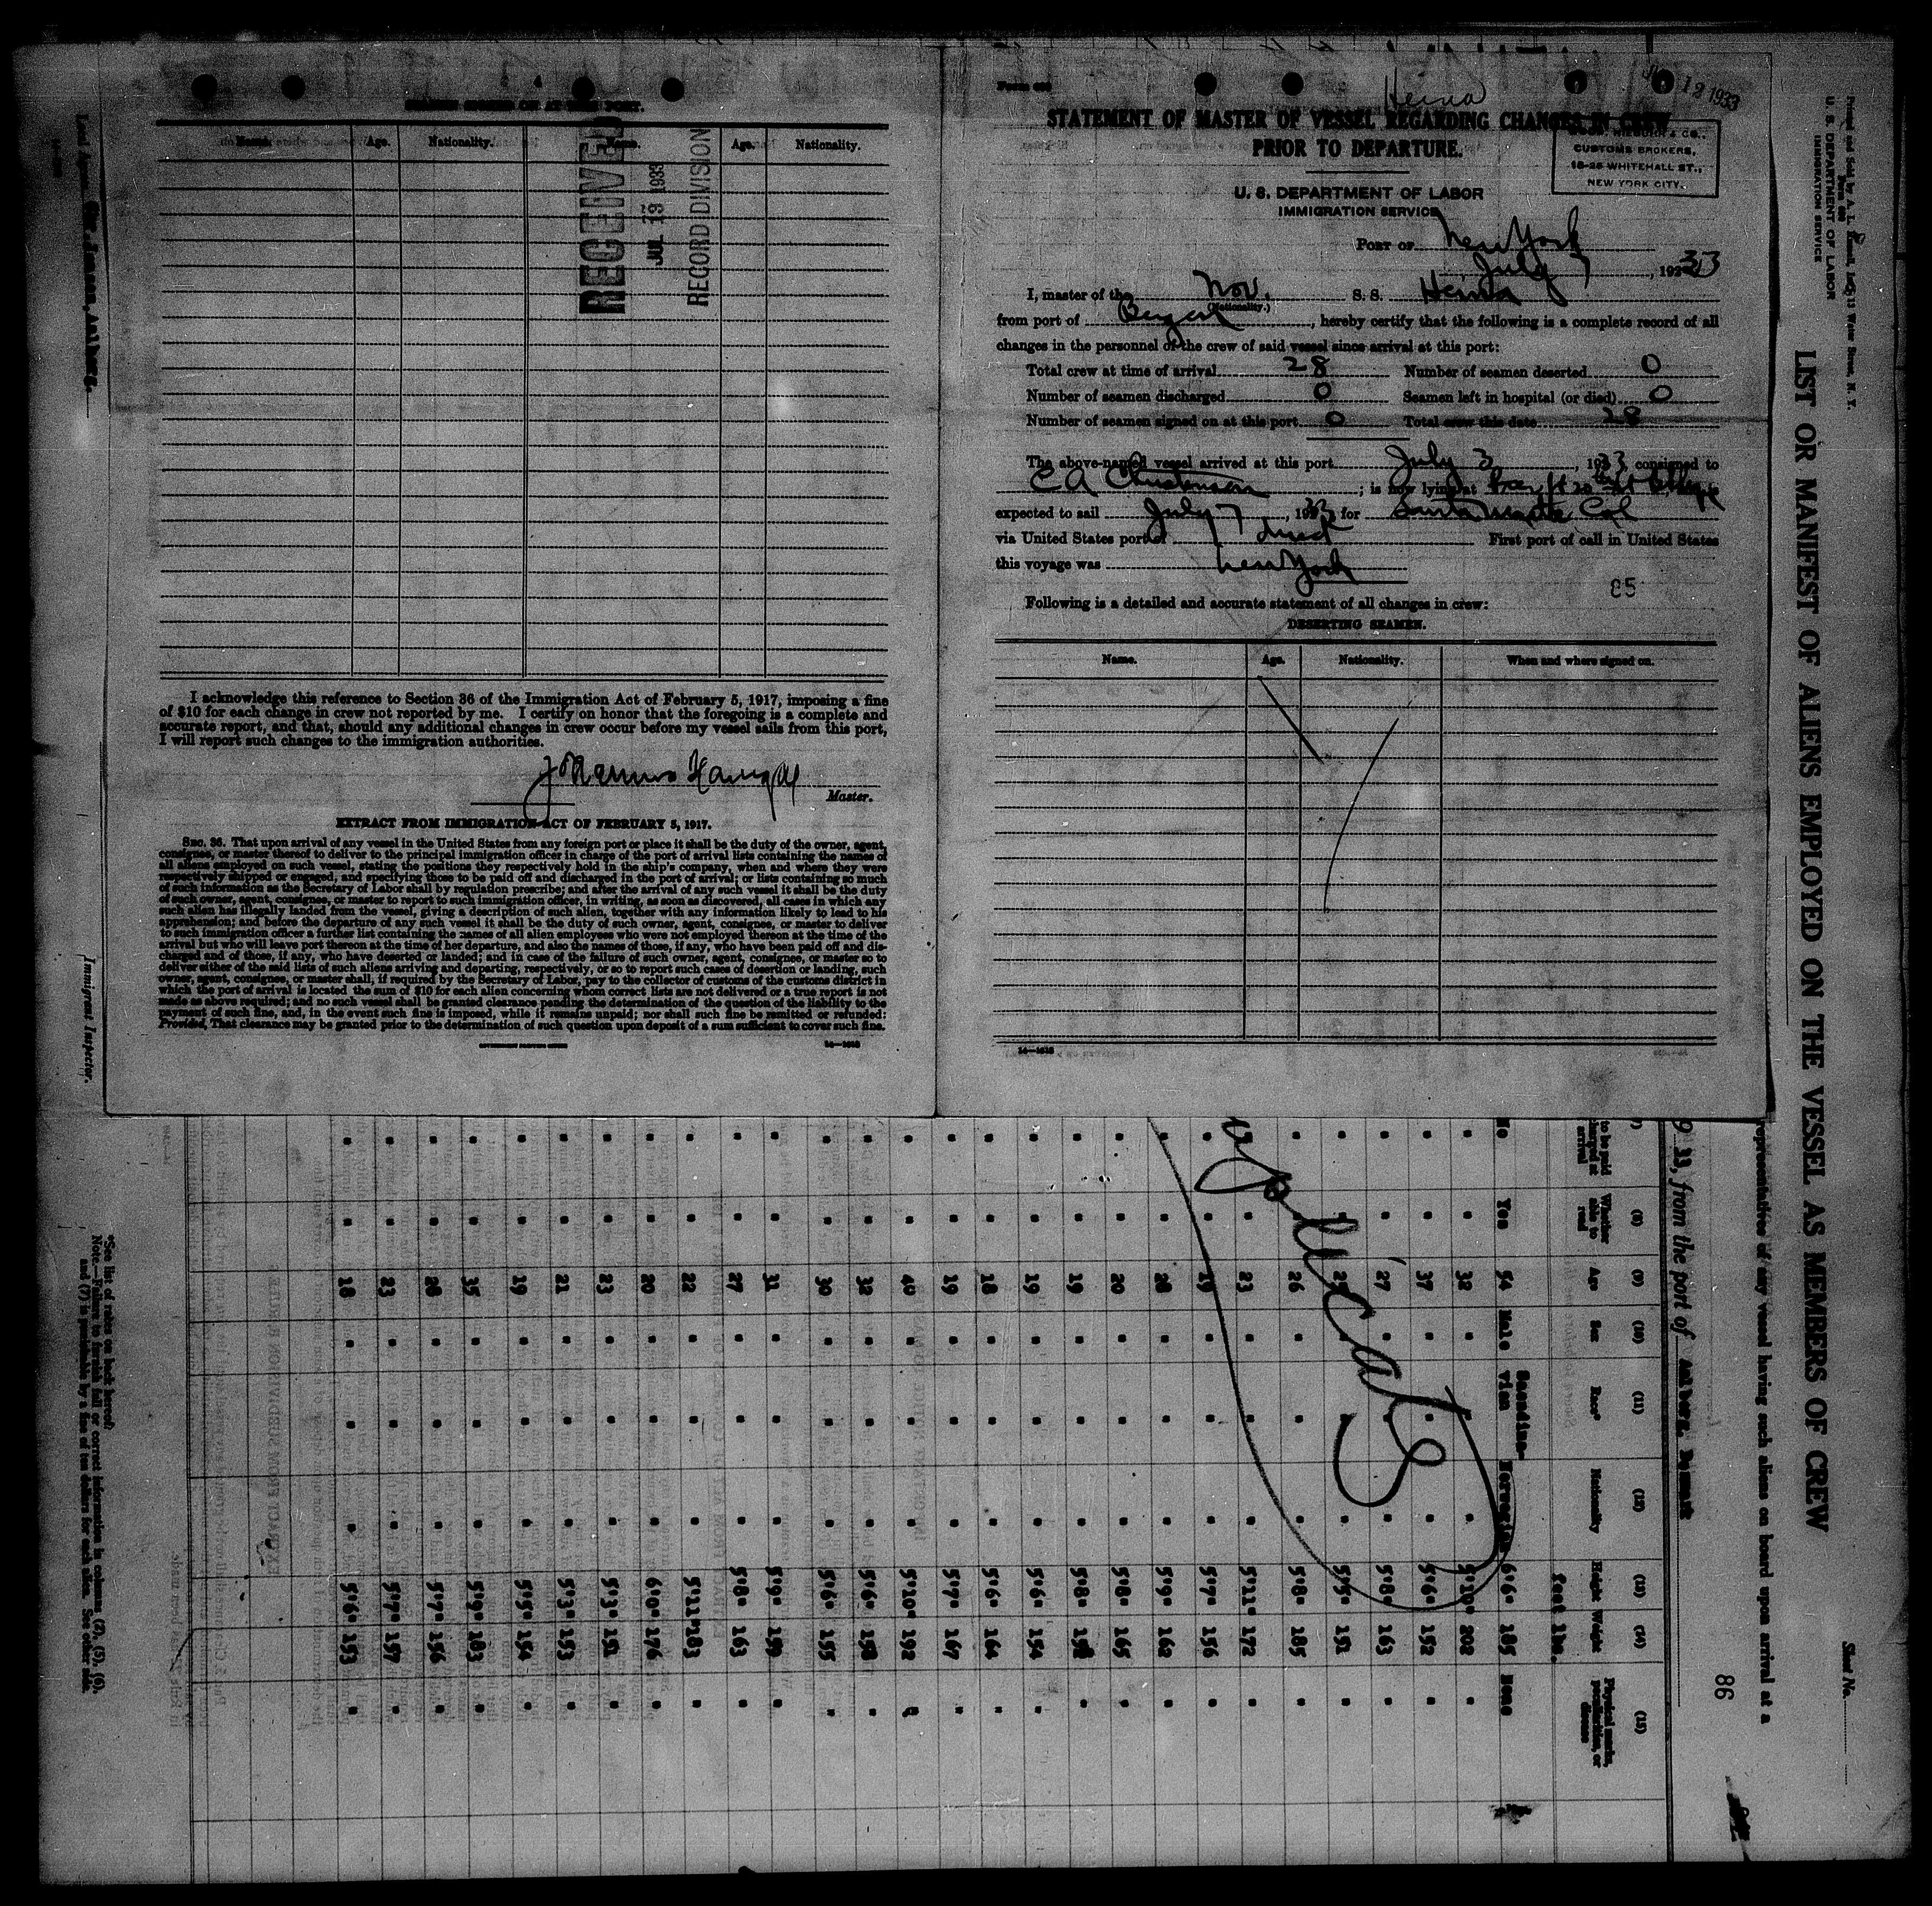 SEAMEN SIGNED ON AT THIS PORT.
Name. Age. Nationality. Name. Age. Nationality.
RECEIVED
JUL 19 1933
RECORD DIVISION
I acknowledge this reference to Section 36 of the Immigration Act of February 5, 1917, imposing a fine
of $10 for each change in crew not reported by me. I certify on honor that the foregoing is a complete and
accurate report, and that, should any additional changes in crew occur before my vessel sails from this port,
I will report such changes to the immigration authorities.
Master.
EXTRACT FROM IMMIGRATION ACT OF FEBRUARY 5, 1917.
SEC. 36. That upon arrival of any vessel in the United States from any foreign port or place it shall be the duty of the owner, agent,
consignee, or master thereof to deliver to the principal immigration officer in charge of the port of arrival lists containing the names of
all aliens employed on such vessel, stating the positions they respectively hold in the ship's company, when and where they were
respectively shipped or engaged, and specifying those to be paid off and discharged in the port of arrival; or lists containing so much
of such information as the Secretary of Labor shall by regulation prescribe; and after the arrival of any such vessel it shall be the duty
of such owner, agent, consignee, or master to report to such immigration officer, in writing, as soon as discovered, all cases in which any
such alien has illegally landed from the vessel, giving a description of such alien, together with any information likely to lead to his
apprehension; and before the departure of any such vessel it shall be the duty of such owner, agent, consignee, or master to deliver
to such immigration officer a further list containing the names of all alien employees who were not employed thereon at the time of the
arrival but who will leave port thereon at the time of her departure, and also the names of those, if any, who have been paid off and dis-
charged and of those, if any, who have deserted or landed; and in case of the failure of such owner, agent, consignee, or master so to
deliver either of the said lists of such aliens arriving and departing, respectively, or so to report such cases of desertion or landing, such
owner, agent, consignee, or master shall, if required by the Secretary of Labor, pay to the collector of customs of the customs district in
which the port of arrival is located the sum of $10 for each alien concerning whom correct lists are not delivered or a true report is not
made as above required; and no such vessel shall be granted clearance pending the determination of the question of the liability to the
payment of such fine, and, in the event such fine is imposed, while it remains unpaid; nor shall such fine be remitted or refunded:
Provided, That clearance may be granted prior to the determination of such question upon deposit of a sum sufficient to cover such fine.
GOVERNMENT PRINTING OFFICE
Heina
12 1933
STATEMENT OF MASTER OF VESSEL REGARDING CHANGES IN CREW
PRIOR TO DEPARTURE.
CUSTOMS BROKERS,
WHITEHALL ST.,
NEW YORK CITY.
U. S. DEPARTMENT OF LABOR
IMMIGRATION SERVICE
PORT OF New York
July 7, 1933
I, master of the Nor. S. S. Heina
(Nationality.)
from port of , hereby certify that the following is a complete record of all
changes in the personnel of the crew of said vessel since arrival at this port:
Total crew at time of arrival 28 Number of seamen deserted 0
Number of seamen discharged 0 Seamen left in hospital (or died) 0
Number of seamen signed on at this port 0 Total crew this date 28
The above-named vessel arrived at this port July 3, 1933, consigned to
C A Christensen ; is now lying at
expected to sail July 7, 1933 for Santa Marta Col
via United States port of direct First port of call in United States
this voyage was New York
85
Following is a detailed and accurate statement of all changes in crew:
DESERTING SEAMEN.
Name. Age. Nationality. When and where signed on.
Immigrant Inspector.
U. S. DEPARTMENT OF LABOR
IMMIGRATION SERVICE
LIST OR MANIFEST OF ALIENS EMPLOYED ON THE VESSEL AS MEMBERS OF CREW
Sheet No.
representative of any vessel having such aliens on board upon arrival at a
86
33, from the port of Aalborg, Denmark
(8) (9) (10) (11) (12) (13) (14) (15)
Whether able to read Age Sex Race* Nationality Height Weight Physical marks, peculiarities, or disease
feet lbs.
No Yes 54 Male Scandinavian Norwegian 6'6" 185 None
" " 32 " " " 5'10" 202 "
" " 37 " " " 5'6" 152 "
" " 27 " " " 5'8" 163 "
" " " " " 5'5" 151 "
" " 26 " " " 5'8" 185 "
" " 23 " " " 5'11" 172 "
" " 19 " " " 5'7" 156 "
" " 28 " " " 5'9" 162 "
" " 20 " " " 5'8" 165 "
" " 19 " " " 5'8" "
" " 19 " " " 5'6" 154 "
" " 18 " " " 5'6" 164 "
" " 19 " " " 5'7" 167 "
" " 40 " " " 5'10" 192 "
" " 32 " " " 5'6" "
" " 30 " " " 5'6" 155 "
" " 31 " " " 5'9" "
" " 27 " " " 5'8" 163 "
" " 22 " " " 5'11" 183 "
" " 20 " " " 6'0" 176 "
" " 23 " " " 5'3" 151 "
" " 21 " " " 5'3" 153 "
" " 19 " " " 5'5" 154 "
" " 35 " " " 5'9" 183 "
" " 28 " " " 5'7" 156 "
" " 23 " " " 5'7" 157 "
" " 18 " " " 5'6" 153 "
*See list of races on back hereof.
Note.—Failure to furnish full or correct information in columns (2), (5), (6),
and (7) is punishable by a fine of ten dollars for each alien. See other side.